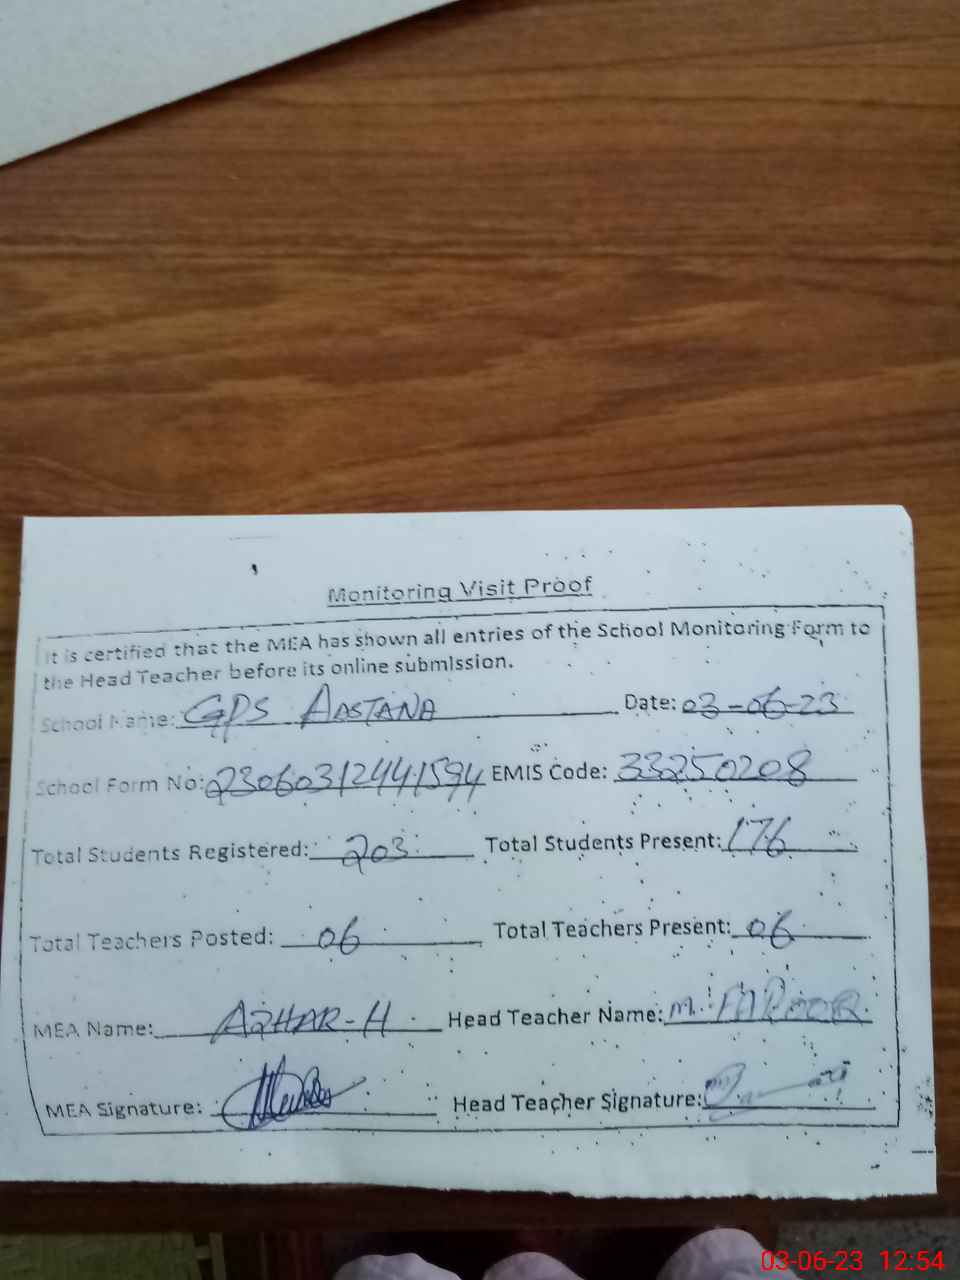 Monitoring Visit Proof
It is certified that the MEA has shown all entries of the School Monitoring Form to
the Head Teacher before its online submission.
School Name: GPS AASTANA Date: 03-06-23
School Form No: 230603124441594 EMIS Code: 33250208
Total Students Registered: 203 Total Students Present: 176
Total Teachers Posted: 06 Total Teachers Present: 06
MEA Name: AZHAR-H Head Teacher Name: M.
MEA Signature: Head Teacher Signature:
03-06-23 12:54